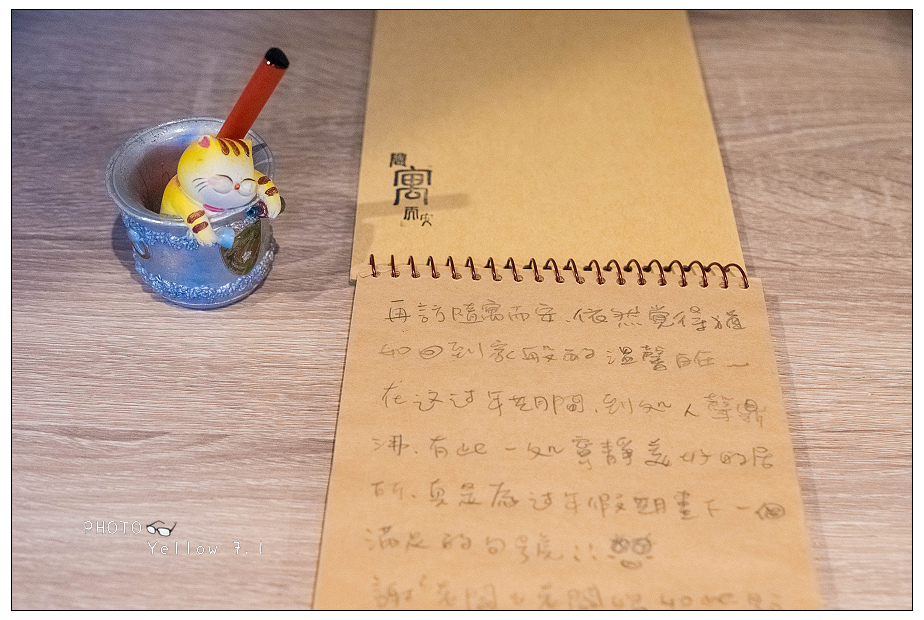 隨
寓
而安
再訪隨寓而安、依然覺得猶
如回到家般的溫馨自在~
在这过年期間、到処人聲鼎
沸、有此一処寧靜美好的居
所、真是為过年假期畫下一個
滿足的句號!!
謝
PHOTO
Yellow 7.1